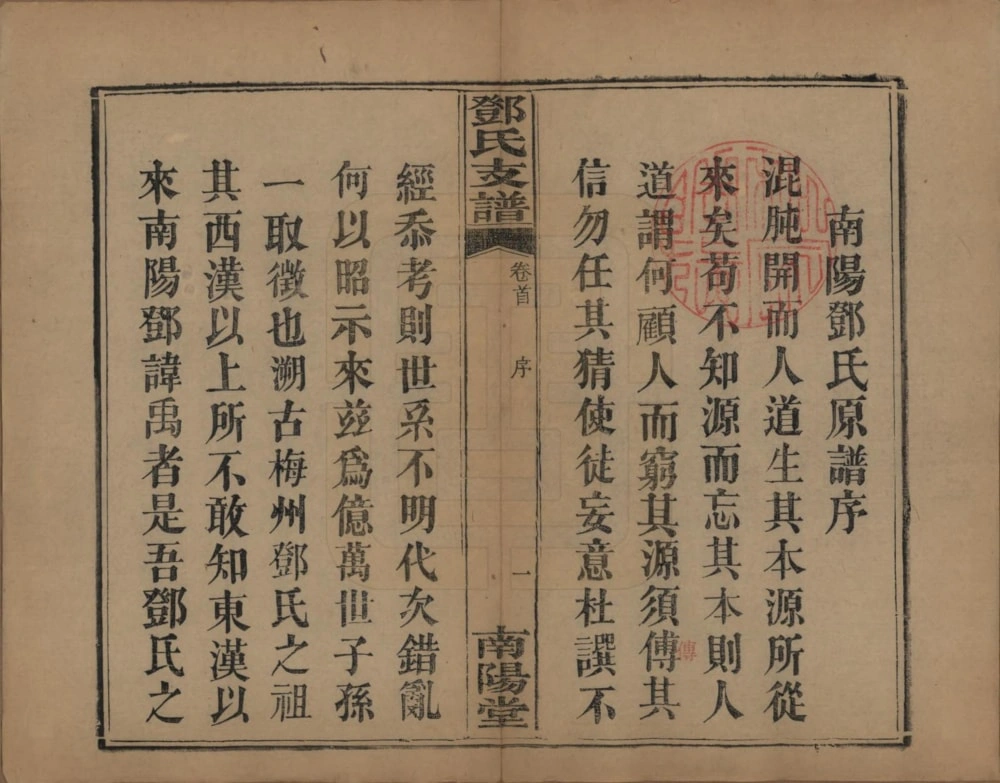 南陽鄧氏原譜序
混肫開而人道生其本源所從
來矣苟不知源而忘其本則人
道謂何顧人而窮其源須傅其
傳
信勿任其猜使徒妄意杜譔不
鄧氏支譜
卷首
序
一
南陽堂
經忝考則世系不明代次錯亂
何以昭示來茲爲億萬世子孫
一取徵也溯古梅州鄧氏之祖
其西漢以上所不敢知東漢以
來南陽鄧諱禹者是吾鄧氏之